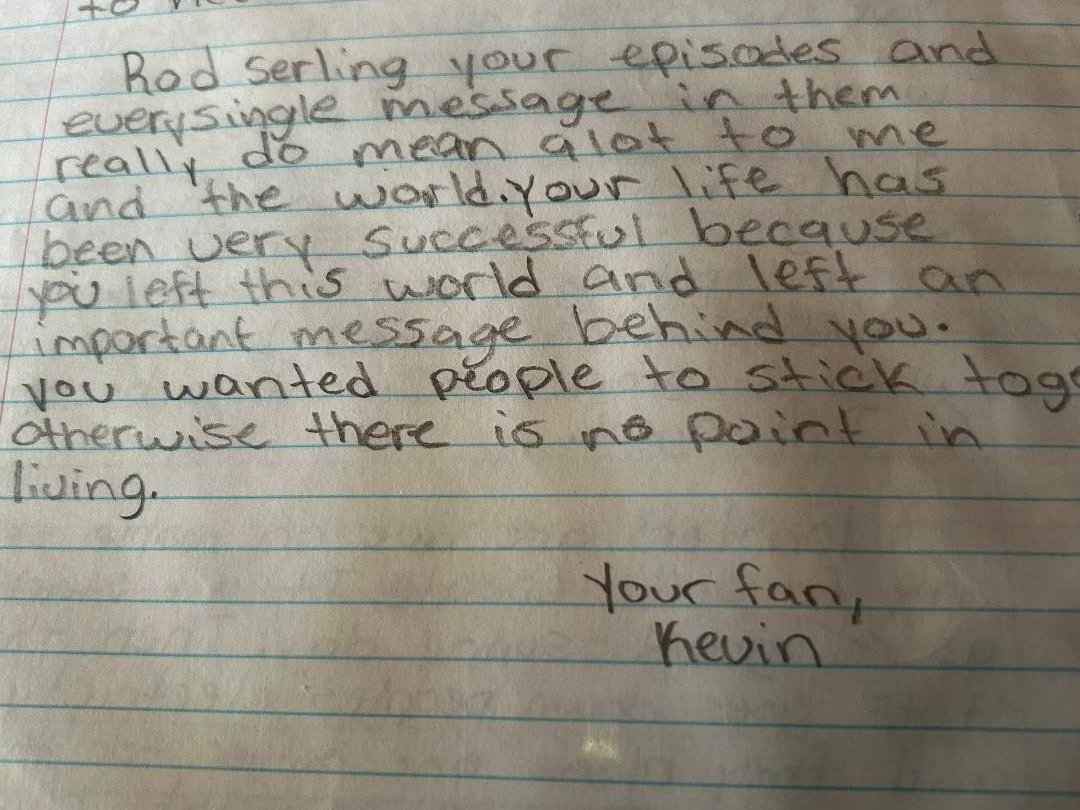 to
Rod Serling your episodes and
everysingle message in them
really do mean alot to me
and the world. Your life has
been very successful because
you left this world and left an
important message behind you.
you wanted people to stick tog
otherwise there is no point in
living.
Your fan,
Kevin